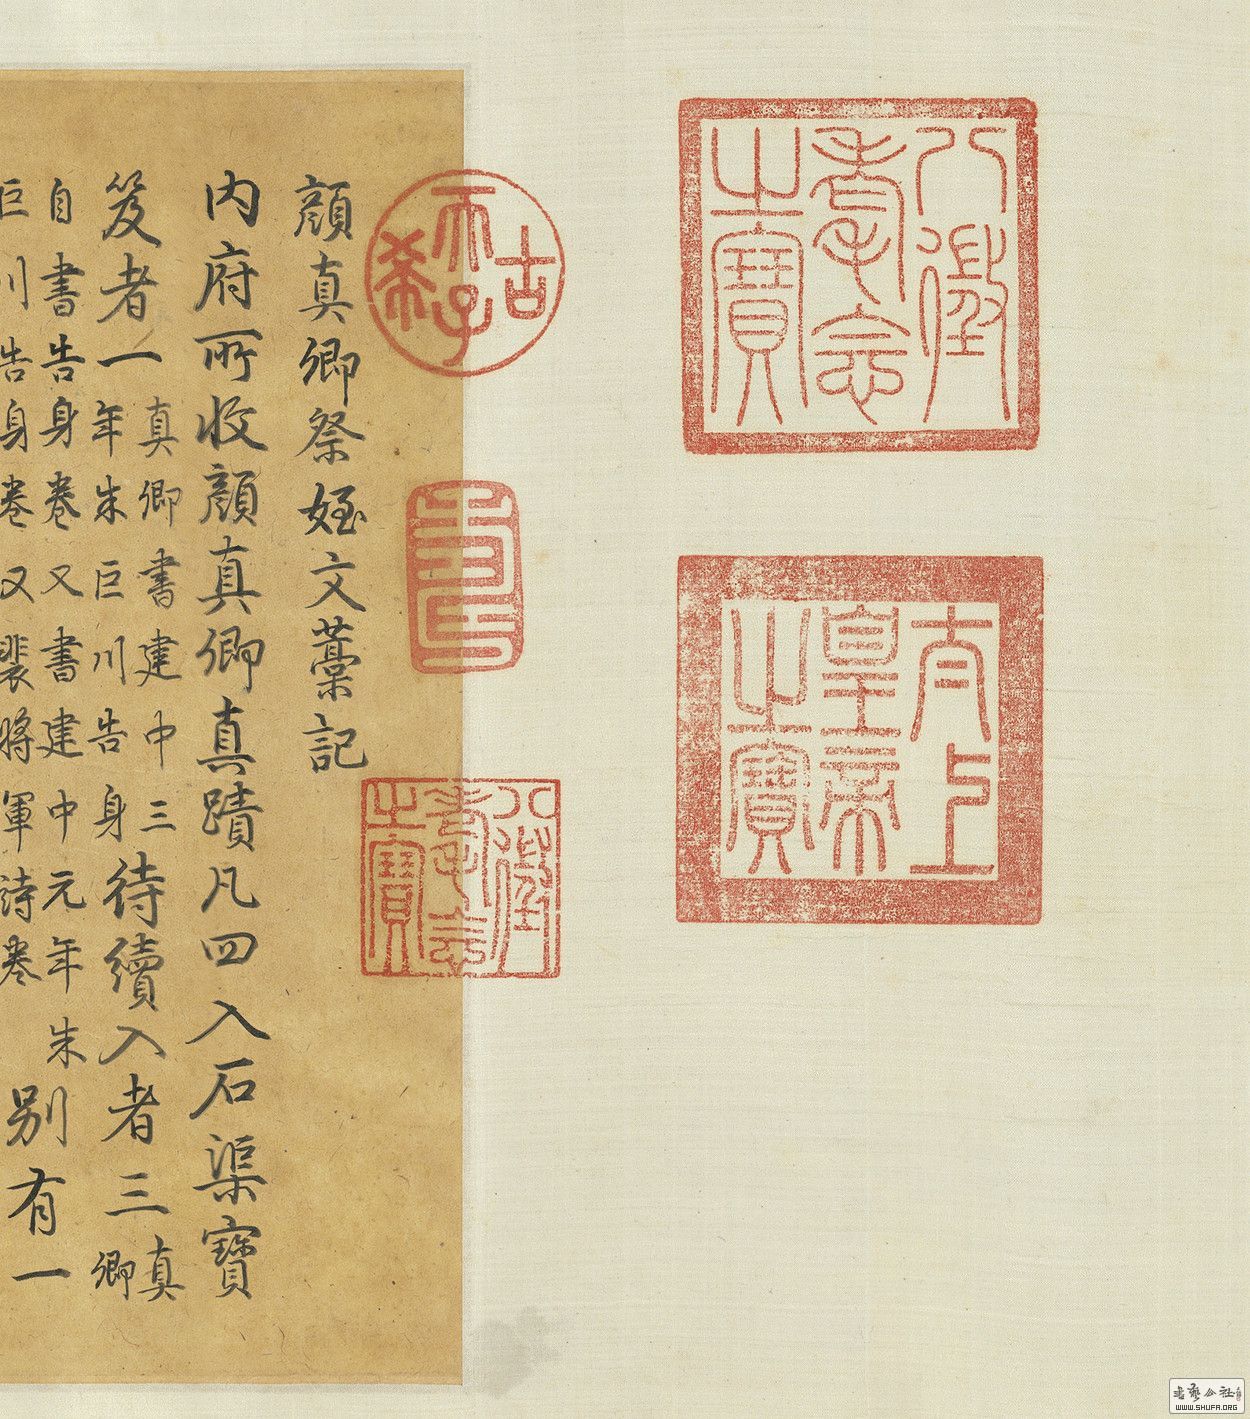 八徵
耄念
之寶
太上
皇帝
之寶
古希天子
壽
八徵
耄念
之寶
顏真卿祭姪文藁記
內府所收顏真卿真蹟凡四入石渠寶
笈者一真卿書建中三年朱巨川告身待續入者三真卿
自書告身卷又書建中元年朱巨川告身卷又裴將軍詩卷別有一
書藝公社
WWW.SHUFA.ORG